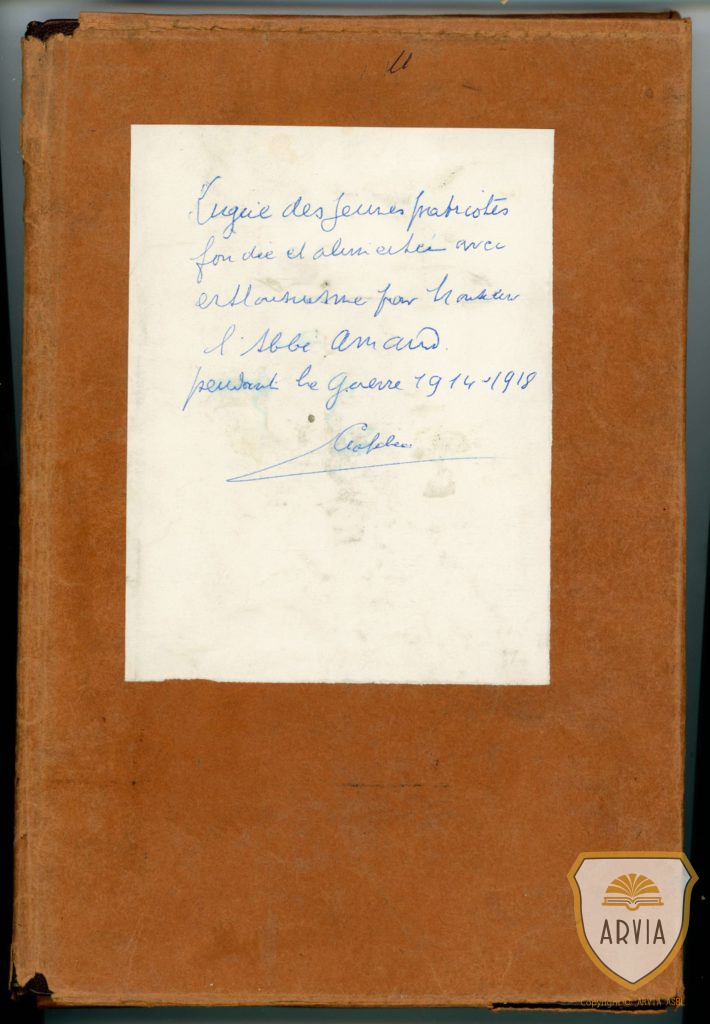 Ligue des Jeunes patriotes
fondée et alimentée avec
enthousiasme par Monsieur
l'Abbé Amand.
pendant la Guerre 1914-1918
ARVIA
Copyright © ARVIA ASBL